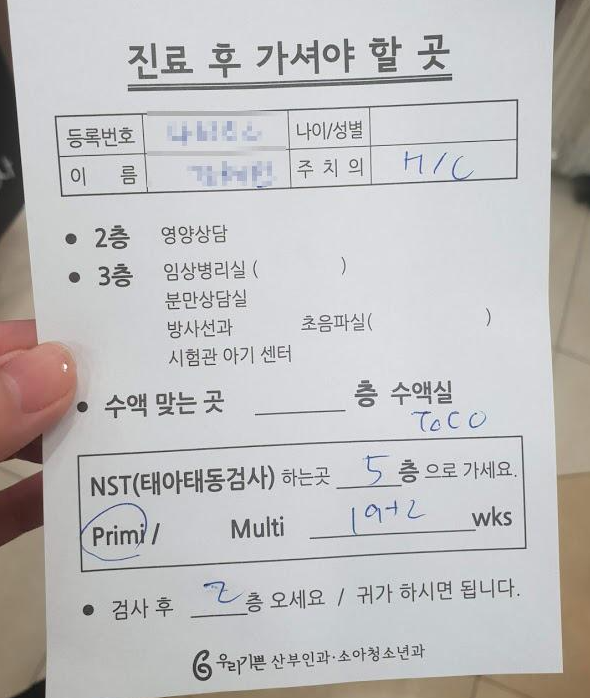 진료 후 가셔야 할 곳
등록번호 나이/성별
이 름 주 치 의 H/C
• 2층 영양상담
• 3층 임상병리실 ( )
분만상담실
방사선과 초음파실( )
시험관 아기 센터
• 수액 맞는 곳 ____ 층 수액실
TOCO
NST(태아태동검사) 하는곳 5 층 으로 가세요.
Primi / Multi 19+2 wks
• 검사 후 2 층 오세요 / 귀가 하시면 됩니다.
우리기쁜 산부인과·소아청소년과